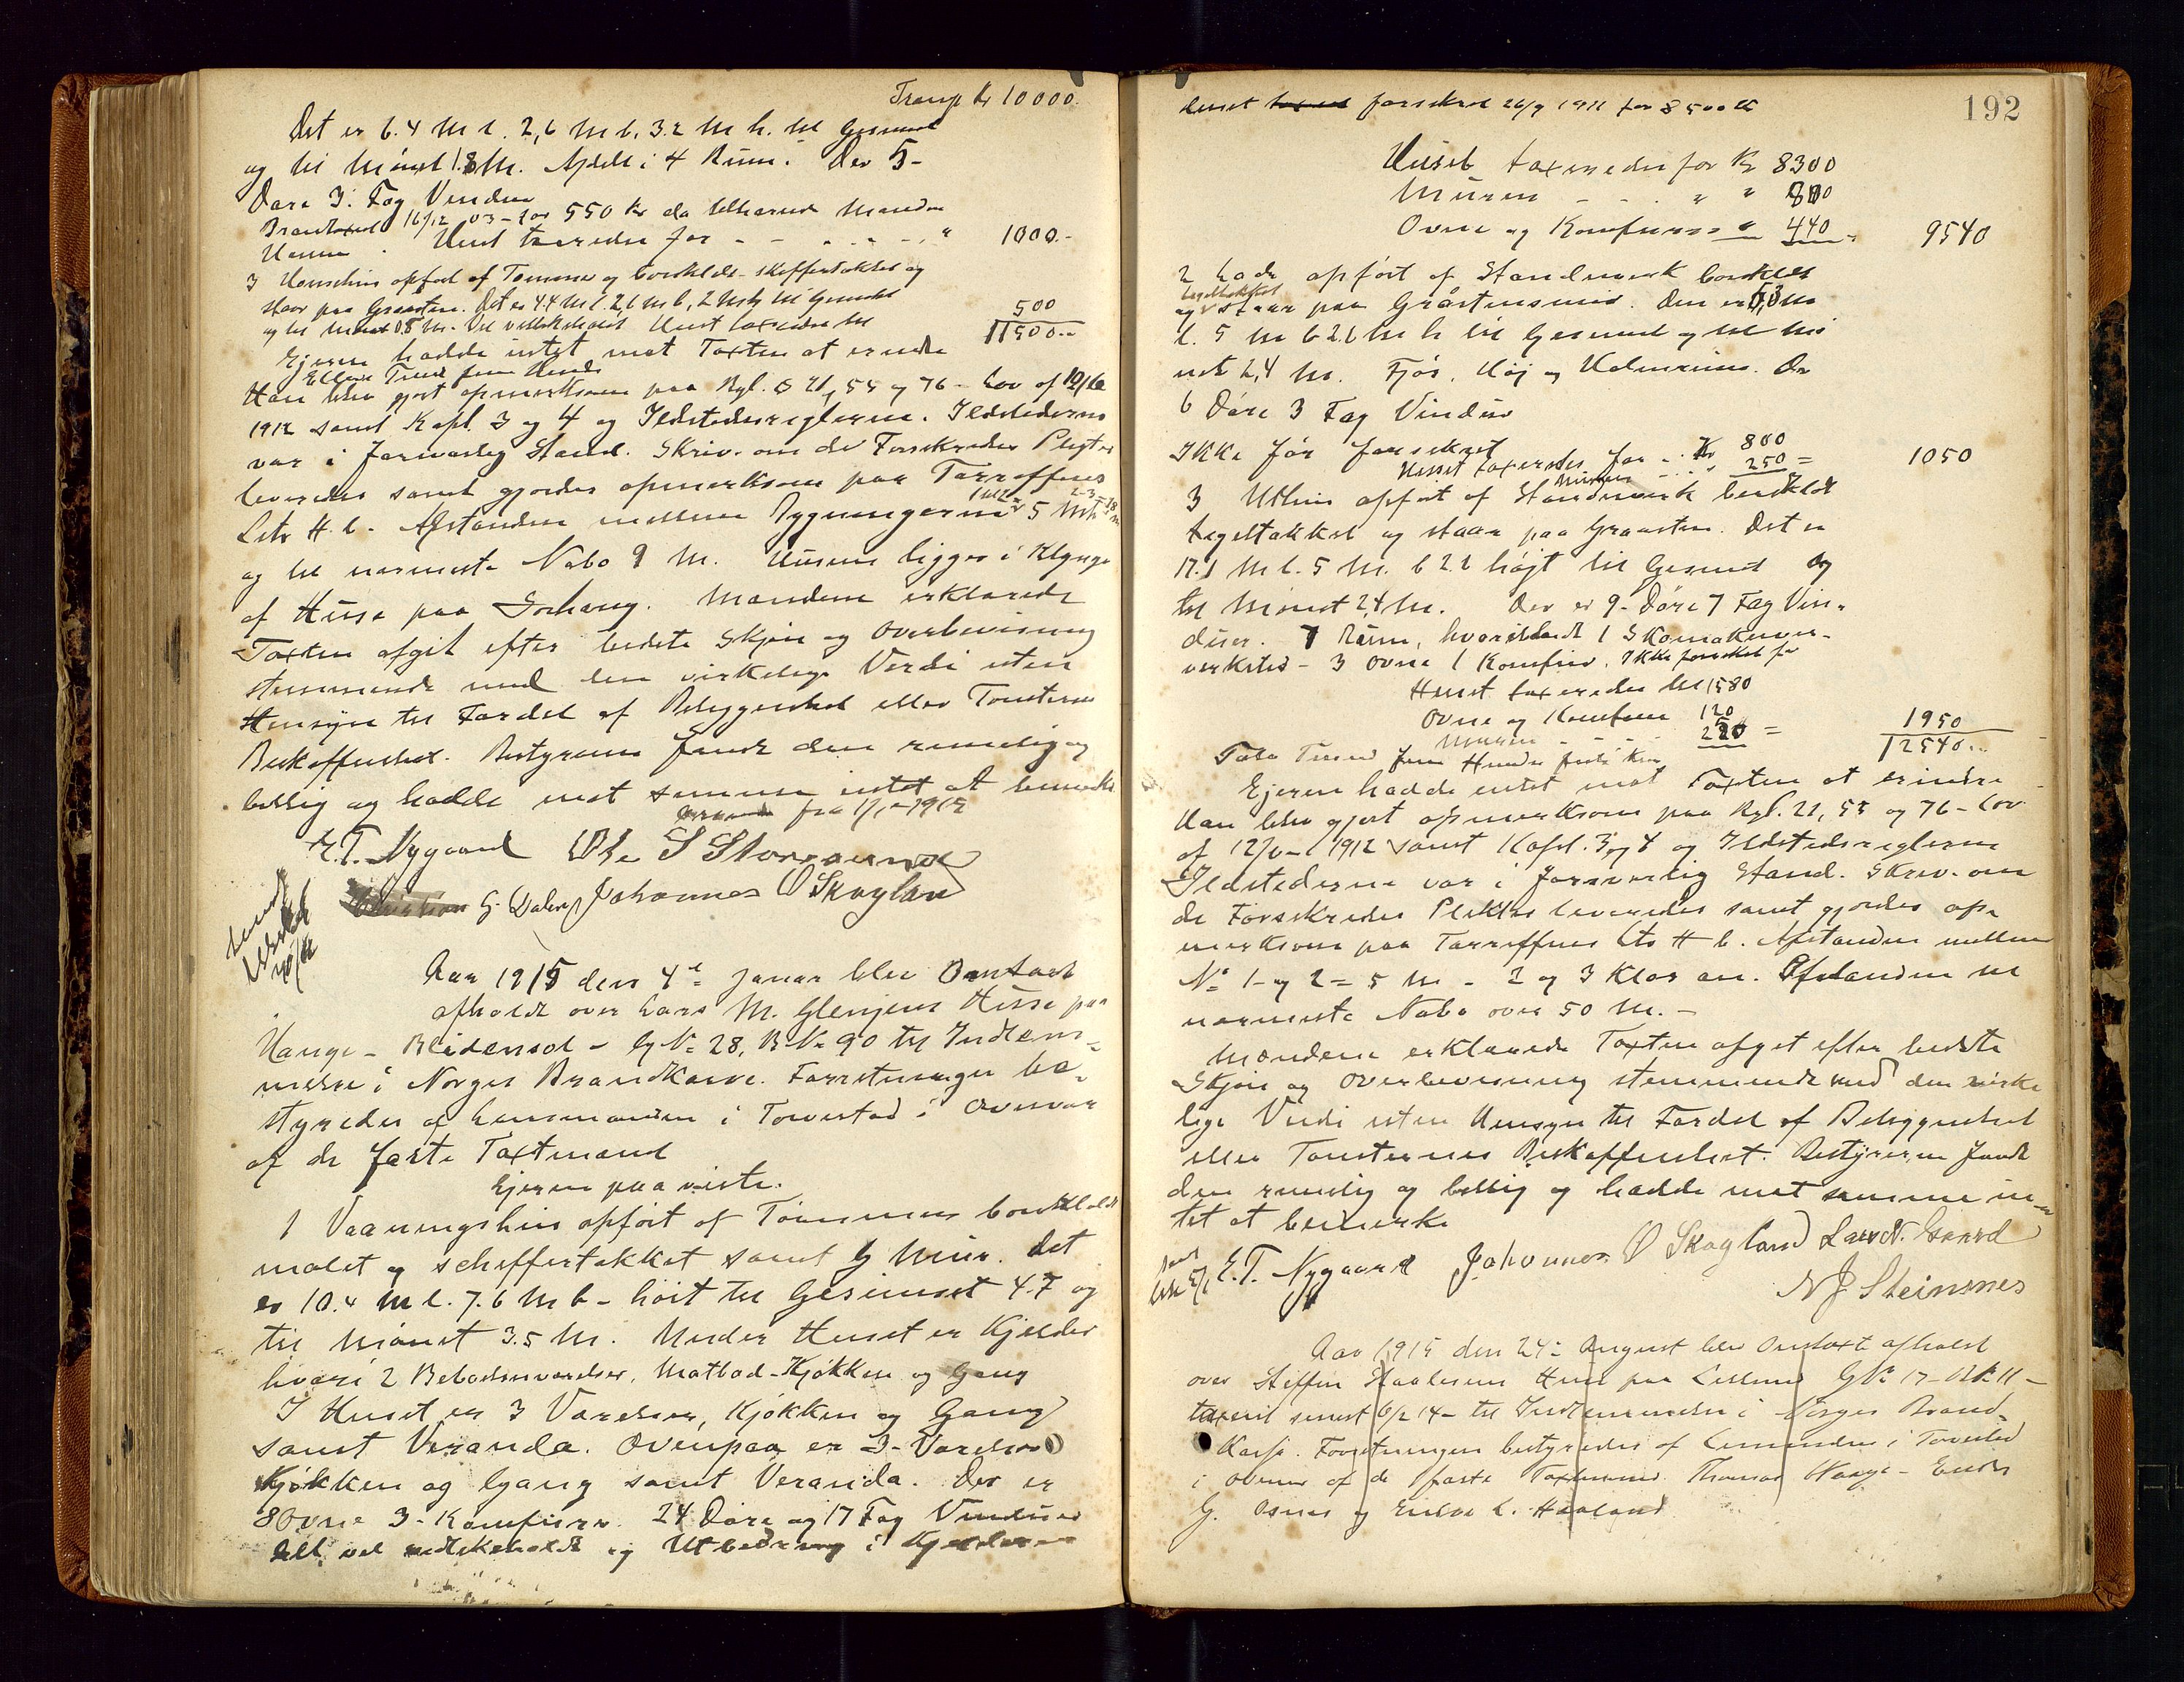 Transp Kr 10000.
Det er 6.4 M l. 2,6 M b. 3.2 M h. til Gesimset
og til Mönet 1.8 M. Afdelt i 4 Rum. Der 5-
Döre 3. Fag Vinduer
Brandtaxt 16/12 03 - for 550 Kr da tilhörende
Huset taxeredes for - - - - - " 1000.-
3 Hönsehus opfört af Tömmer og bordklædt - skeffertækket og
staar paa Graasten. Det er 4.4 M l 2,6 M b, 2 M h til Gesimset
og til Mönet 0.8 M. Vel vedlikeholdt Huset taxeredes til 500
11500..
Ejeren hadde intet mot Taxten at erindre
Elleve Tused fem Hundr
Han blev gjort opmerksom paa Rgl. § 21, 55 og 76 - Lov af 12/6
1912 samt Kapl. 3 og 4 og Ildstedsreglerne. Ildstederne
var i forsvarlig Stand. Skriv. om de Forsikredes Pligter
leveredes samt gjordes opmerksom paa Tarroffenes
Litr H. b. Afstanden mellem Bygningerne 1 til 2 = 5 M
og til nærmeste Nabo 9 M. Husene ligger i Klynge
af Huse paa Sörhaug. Mændene erklærede
Taxten afgit efter bedste Skjön og Overbevisning
stemmende med den virkelige Verdi uten
Hensyn til Fordel af Beliggenhed eller Tomternes
Beskaffenhed. Bestyreren fandt den rimelig og
billig og hadde mot samme intet at bemerke
fra 1/1 - 1915
E. T. Nygaard Ole S Storesund
G. Dalen Johannes O Skogland
Aar 1915 den 4de Januar blev Omtaxt
afholdt over Lars M. Glenjens Huse paa
Hauge - Blidensol - G No 28, B No 90 til Indlem-
melse i Norges Brandkasse. Forretningen be-
styredes af Lensmanden i Torvestad i Overvær
af de faste Taxtmænd
Ejeren paaviste.
1 Vaaningshus opfört af Tömmer bordklædt
malet og scheffertækket samt G Mur. Det
er 10.4 M l. 7.6 M b - höit til Gesimset 4.7 og
til Mönet 3.5 M. Under Huset er Kjelder
hvori 2 Beboelsesværelser, Matbod - Kjökken og Gang
I Huset er 3 Værelser, Kjökken og Gang
samt Veranda. Ovenpaa er 3 - Værelser
Kjökken og Gang samt Veranda. Der er
8 Ovne 3 - Komfurer 24 Döre og 17 Fag Vinduer
Alt vel vedlikeholdt og Utbedring i Kjelderen
192
Huset forsikret 26/9 1911 for 8500 Kr
Huset taxeredes for Kr 8300
Muren - - - " " 800
Ovne og Komfurer " 440 = 9540
2 Lade opfört af Standverk bordklædt
tegeltækket
og staar paa Gråstensmur. Den er
l. 5 M b 2.6 M h til Gesimset og til Mö
net 2,4 M. Fjös, Höj og Redenrum. Der
6 Döre 3 Fag Vinduer
Ikke för forsikret
Huset taxeredes for - Kr 800
Muren 250 = 1050
3 Uthus opfört af Standverk bordklædt
tegeltækket og staar paa Graasten. Det er
17.1 M l. 5 M. b 2.2 höjt til Gesimset og
til Mönet 2,4 M. Der er 9 - Döre 7 Fag Vin-
duer. 7 Rum, hvoriblandt 1 Skomakerver-
verksted - 3 Ovne 1 Komfur. Ikke forsikret för
Huset taxeredes til 1580
Ovne og Komfurer 120
Muren - - - 250 = 1950
12540..
Tolv Tusind fem Hundr firti Kr
Ejeren hadde intet mot Taxten at erindre
Han blev gjort opmerksom paa Rgl. 21, 55 og 76 - Lov
af 12/6 - 1912 samt Kapl. 3 og 4 og Ildstedsreglerne
Ildstederne var i forsvarlig Stand. Skriv. om
de Forsikredes Plikter leveredes samt gjordes op-
merksom paa Tarroffens Litr H b. Afstanden mellem
No 1 - og 2 = 5 M - 2 og 3 Klos an. Afstanden til
nærmeste Nabo over 50 M. -
Mændene erklærede Taxten afgit efter bedste
Skjön og Overbevisning stemmende med den virke
lige Verdi uten Hensyn til Fordel af Beliggenhed
eller Tomternes Beskaffenhet. Bestyreren fandt
den rimelig og billig og hadde mot samme in-
tet at bemerke
E. T. Nygaard Johannes O Skogland Lars N. Gaard
N J Steinsnes
Aar 1915 den 24de August blev Omtaxt afholdt
over Steffen Haalesens Huse paa G No 17 - B No 11 -
taxerit senest 6/2 14 - til Indlemmelse i Norges Brand
Kasse. Forretningen bestyredes af Lensmanden i Torvestad
i Overvær af de faste Taxtmænd Thomas Hauge - Endre
G. Osnes og Endre L. Haaland